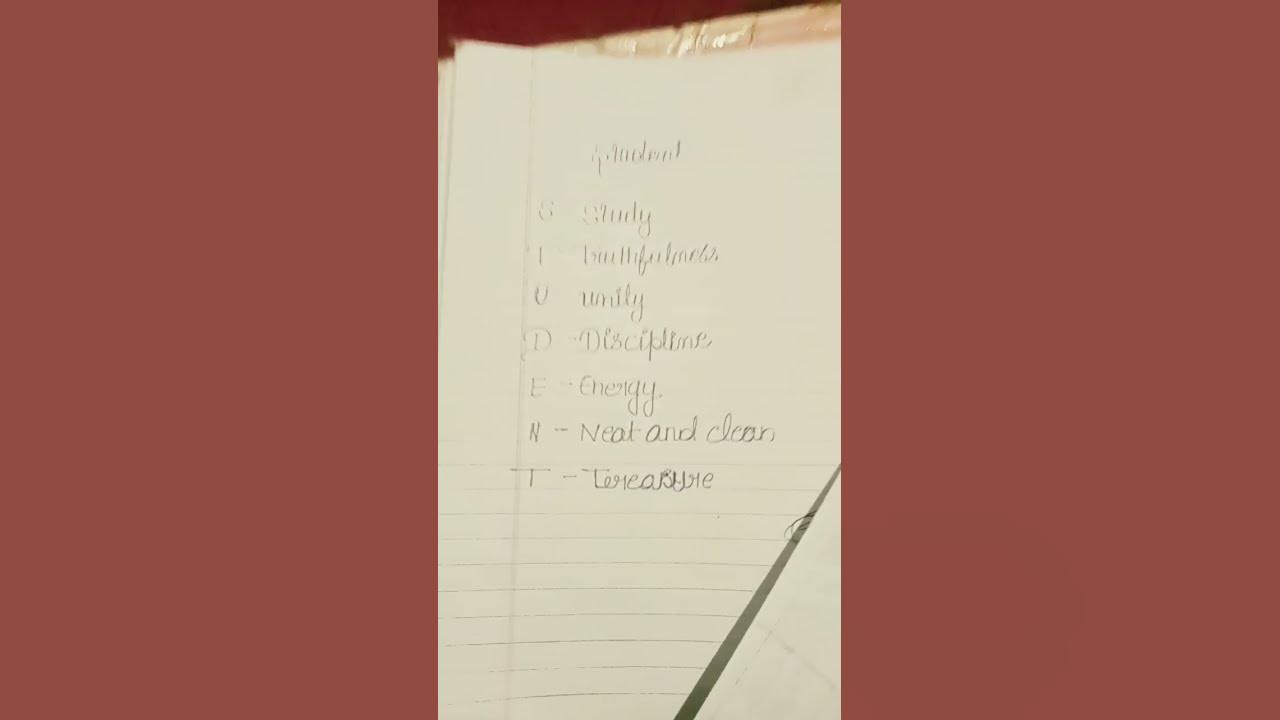 Student
S Study
T truthfulness
U unity
D - Discipline
E - Energy
N - Neat and clean
T - Tereasure